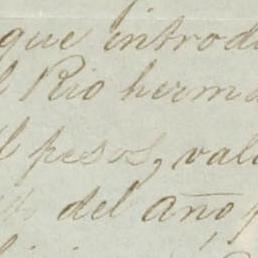 que introdu
l Rio herma
l pesos, val
del año, p